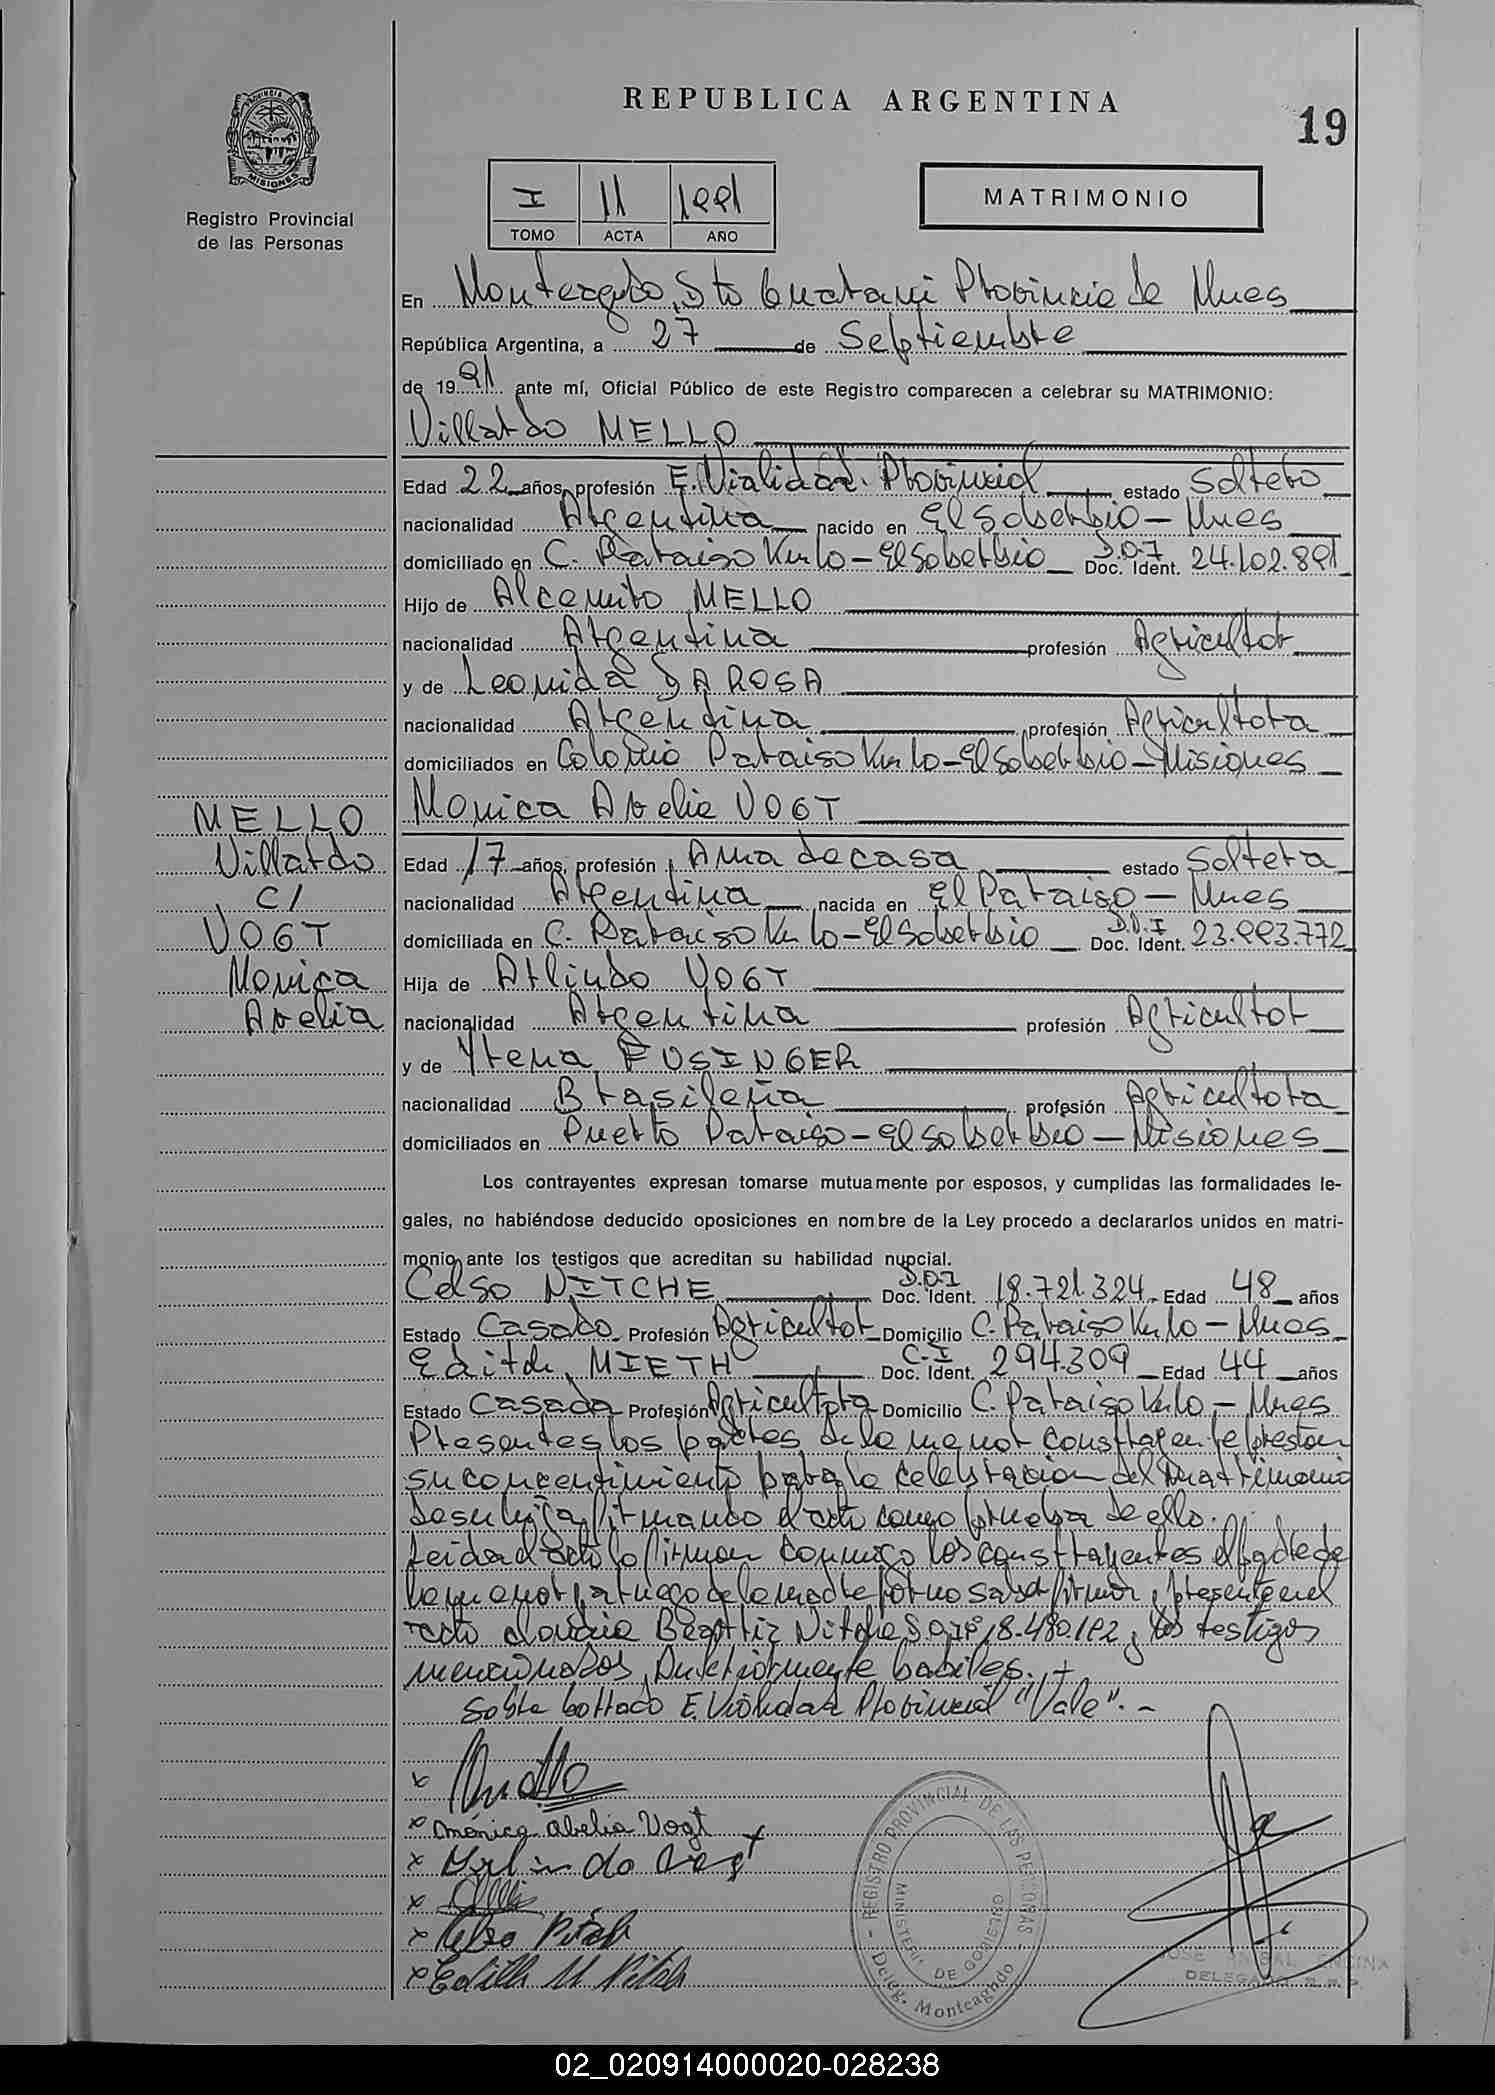 REPUBLICA ARGENTINA
19
PROVINCIA DE
MISIONES
Registro Provincial
de las Personas
I 11 1991
TOMO ACTA AÑO
MATRIMONIO
En Monteagudo, Dto Guaraní Provincia de Mnes
República Argentina, a 27 de Septiembre
de 1991 ante mí, Oficial Público de este Registro comparecen a celebrar su MATRIMONIO:
Villardo MELLO
Edad 22 años, profesión E. Vialidad Provincial estado Soltero
nacionalidad Argentina nacido en El Soberbio - Mnes
domiciliado en C. Paraiso Km 10 - El Soberbio D.N.I Doc. Ident. 24.102.891
Hijo de Alcemiro MELLO
nacionalidad Argentina profesión Agricultor
y de Leonida DA ROSA
nacionalidad Argentina profesión Agricultora
domiciliados en Colonia Paraiso Km 10 - El Soberbio - Misiones
Monica Avelia VOGT
Edad 17 años, profesión Ama de casa estado Soltera
nacionalidad Argentina nacida en El Paraiso - Mnes
domiciliada en C. Paraiso Km 10 - El Soberbio D.N.I Doc. Ident. 23.993.772
Hija de Arlindo VOGT
nacionalidad Argentina profesión Agricultor
y de Yrena PUSINGER
nacionalidad Brasileña profesión Agricultora
domiciliados en Puerto Paraiso - El Soberbio - Misiones
MELLO
Villardo
C/
VOGT
Monica
Avelia
Los contrayentes expresan tomarse mutuamente por esposos, y cumplidas las formalidades le-
gales, no habiéndose deducido oposiciones en nombre de la Ley procedo a declararlos unidos en matri-
monio ante los testigos que acreditan su habilidad nupcial.
Celso NITCHE D.N.I Doc. Ident. 18.721.324 Edad 48 años
Estado Casado Profesión Agricultor Domicilio C. Paraiso Km 10 - Mnes
Edith MIETH C-I Doc. Ident. 294.309 Edad 44 años
Estado Casada Profesión Agricultora Domicilio C. Paraiso Km 10 - Mnes
Presentes los padres de la menor constrayente prestan
su concentimiento para la celebracion del matrimonio
de su hija, firmando el acto como prueba de ello.
Leida el acta la firman conmigo los constrayentes el padre de
la menor, a ruego de la madre por no saber firmar, presente en el
acto Claudia Beatriz Nitche D.N.I 18.480.192, los testigos
mencionados Anteriormente habiles.
Sobre borrado E. Vialidad Provincial "Vale". -
x Mello
x Mónica abelia Vogt
x Arlindo Vogt
x
x Celso Nitch
x Edith M Nitch
REGISTRO PROVINCIAL DE LAS PERSONAS
MINISTERIO DE GOBIERNO
Deleg. Monteagudo
JOSE ANIBAL ENCINA
DELEGADO R.R.P.
02_020914000020-028238